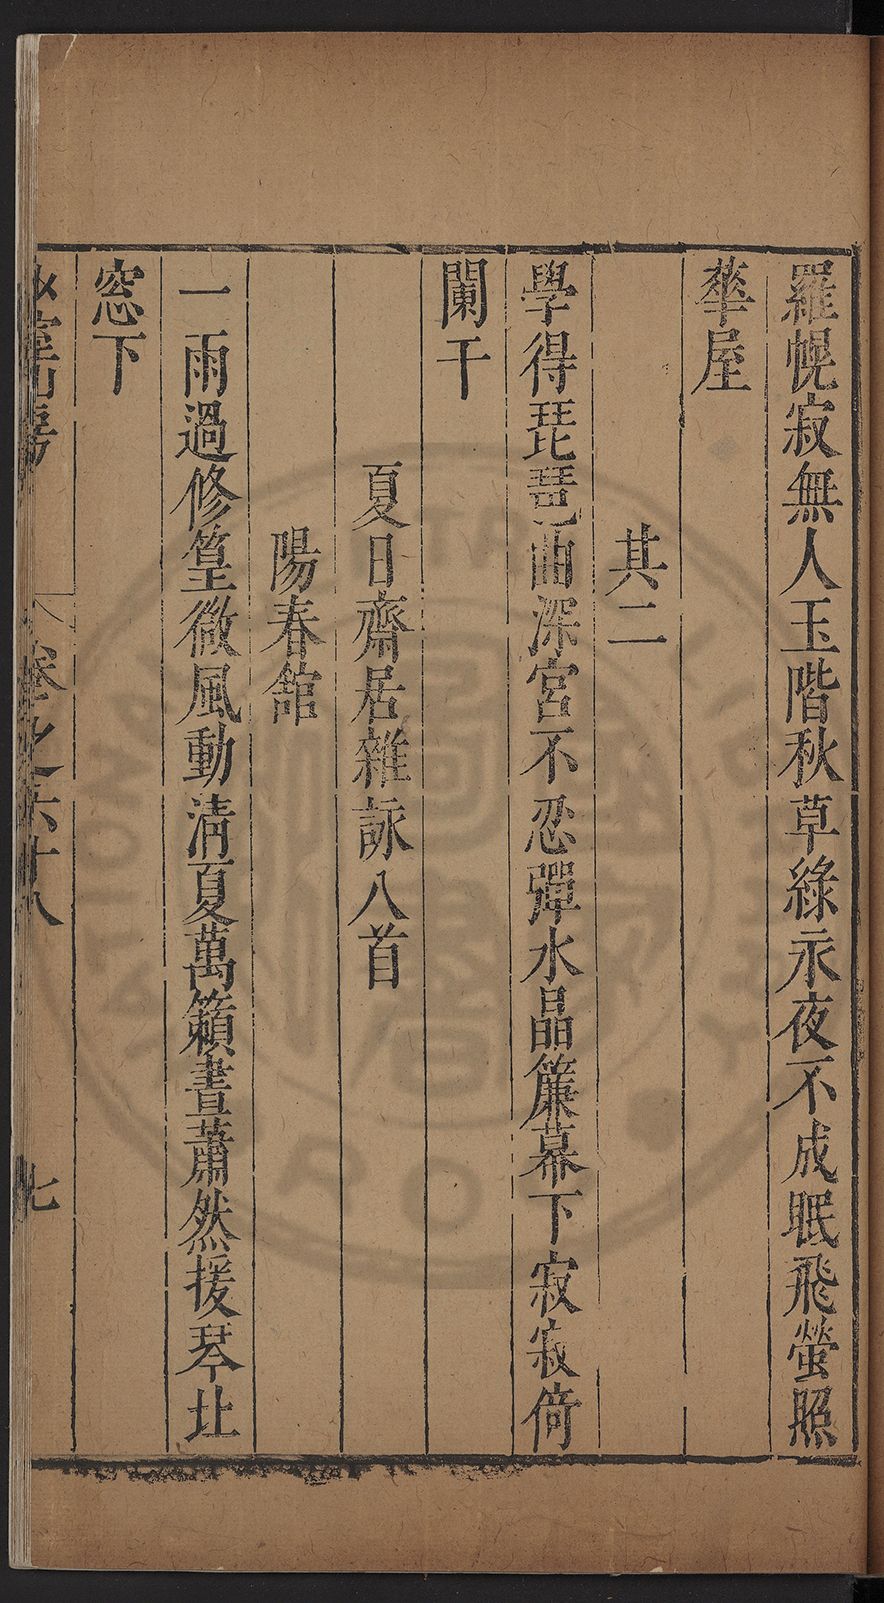 羅幌寂無人玉階秋草綠永夜不成眠飛螢照
華屋
其二
學得琵琶曲深宮不忍彈水晶簾幕下寂寂倚
闌干
夏日齋居雜詠八首
陽春館
一雨過修篁微風動清夏萬籟晝蕭然援琴北
窓下
卷之六十八
七